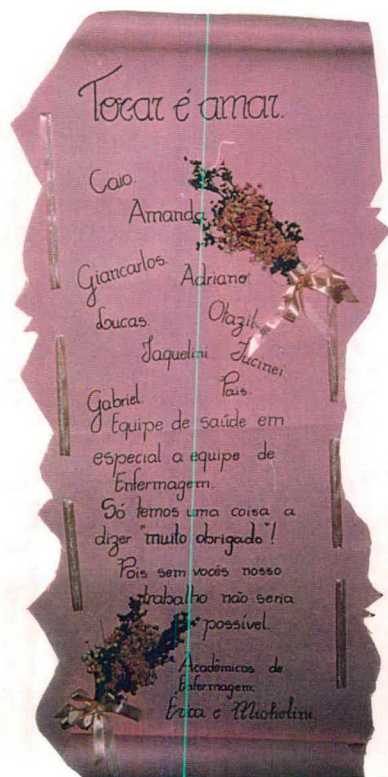 Tocar é amar.
Caio.
Amanda
Giancarlos. Adriano
Lucas. Olazil
Jaquelini Jucinei
Gabriel. Pais.
Equipe de saúde em
especial a equipe de
Enfermagem.
Só temos uma coisa a
dizer "muito obrigado"!
Pois sem vocês nosso
trabalho não seria
possível.
Acadêmicas de
Enfermagem:
Erica e Michelini.